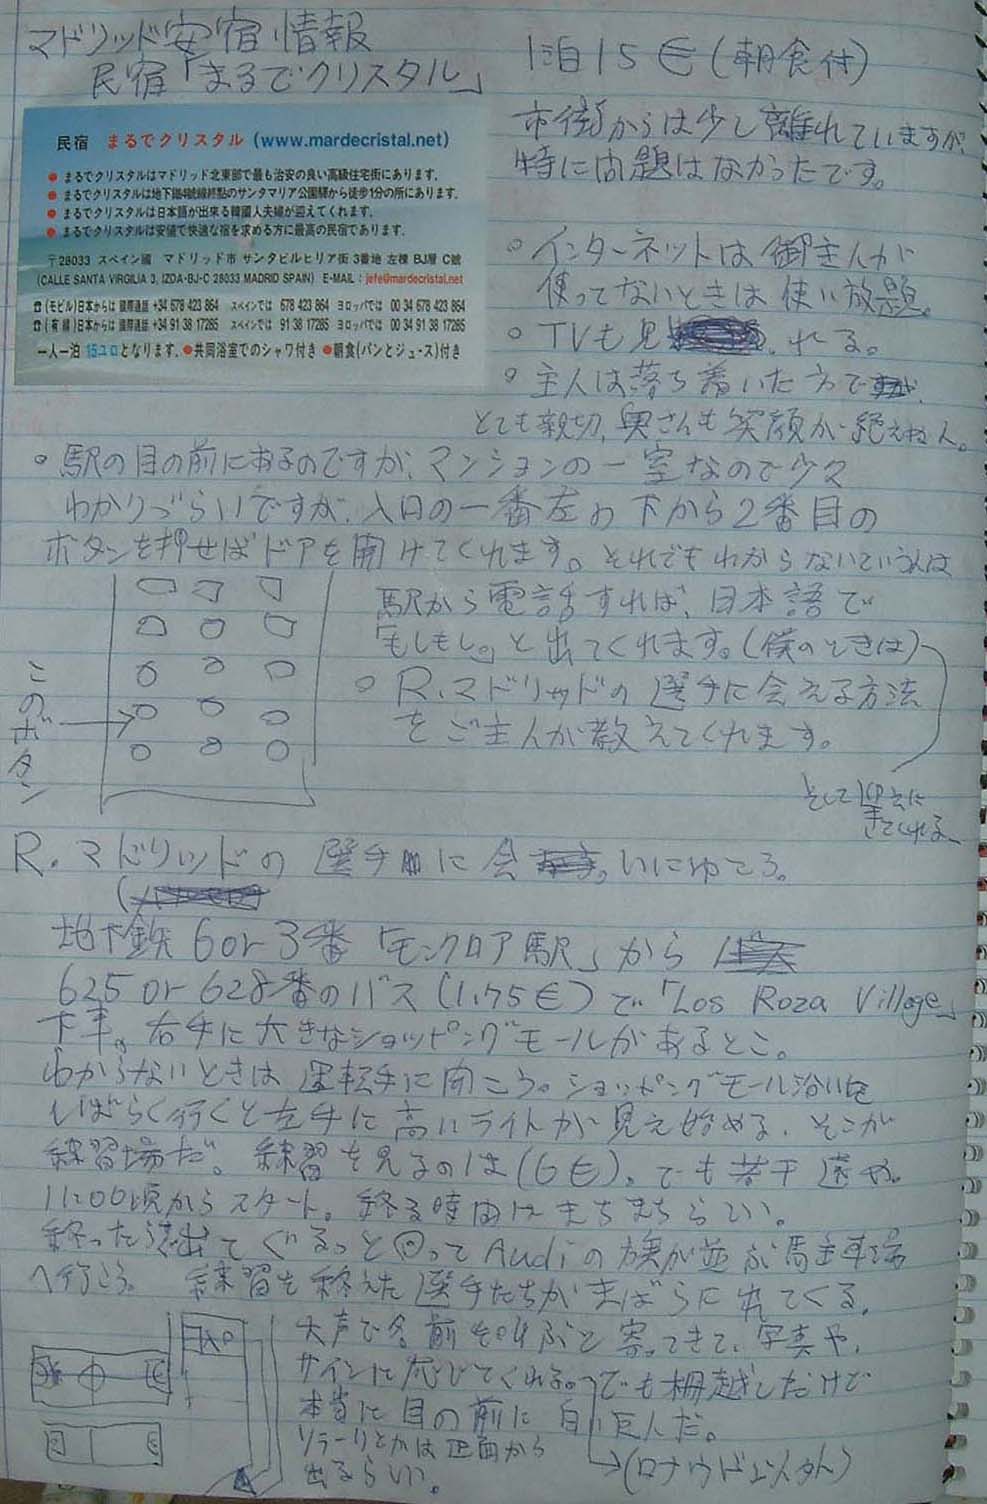 マドリッド安宿情報
民宿「まるでクリスタル」
1泊15€(朝食付)
市街からは少し離れていますが、
特に問題はなかったです。
民宿 まるでクリスタル (www.mardecristal.net)
● まるでクリスタルはマドリッド北東部で最も治安の良い高級住宅街にあります.
● まるでクリスタルは地下鐵4號線終點のサンタマリア公園驛から徒歩1分の所にあります.
● まるでクリスタルは日本語が出来る韓國人夫婦が迎えてくれます.
● まるでクリスタルは安値で快適な宿を求める方に最高の民宿であります.
〒28033 スペイン國 マドリッド市 サンタビルヒリア街 3番地 左棟 BJ層 C號
(CALLE SANTA VIRGILIA 3, IZDA-BJ-C 28033 MADRID SPAIN) E-MAIL : jefe@mardecristal.net
☎(モビル)日本からは 國際通話 +34 678 423 864 スペインでは 678 423 864 ヨロッパでは 00 34 678 423 864
☎(有線)日本からは 國際通話 +34 91 38 17285 スペインでは 91 38 17285 ヨロッパでは 00 34 91 38 17285
一人一泊 15ユロとなります. ●共同浴室でのシャワ付き ●朝食(パンとジュ-ス)付き
○ インターネットは御主人が
使ってないときは使い放題。
○ TVも見れる。
○ 主人は落ち着いた方で
とても親切、奥さんも笑顔が絶えねえ。
○ 駅の目の前にあるのですが、マンションの一室なので少々
わかりづらいですが、入口の一番左の下から2番目の
ボタンを押せばドアを開けてくれます。それでもわからないという人は
駅から電話すれば、日本語で
「もしもし。」と出てくれます。(僕のときは)
そして迎えに
きてくれる
○ R.マドリッドの選手に会える方法
をご主人が教えてくれます。
このボタン
R.マドリッドの選手に会いにゆこう。
地下鉄6or3番「モンクロア駅」から
625 or 628番のバス(1.75€)で「Los Roza Village」
下車。右手に大きなショッピングモールがあるとこ。
わからないときは運転手に聞こう。ショッピングモール沿いを
しばらく行くと左手に高いライトが見え始める、そこが
練習場だ。練習を見るのは(6€)。でも若干遠や。
11:00頃からスタート。終る時間はまちまちらしい。
終ったら出てぐるっと回ってAudiの旗が並ぶ駐車場
へ行こう。練習を終えた選手たちがまばらに出てくる。
大声で名前を叫ぶと寄ってきて、写真や、
サインに応じてくれる。でも柵越しだけど
本当に目の前に白い巨人だ。
ソラーリとかは正面から
出るらしい。
→(ロナウド以外)